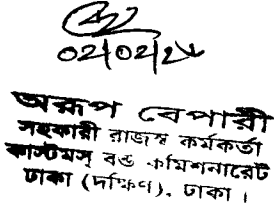 02/02/২৮
অরূপ বেপারী
সহকারী রাজস্ব কর্মকর্তা
কাস্টমস্ বন্ড কমিশনারেট
ঢাকা (দক্ষিণ), ঢাকা।